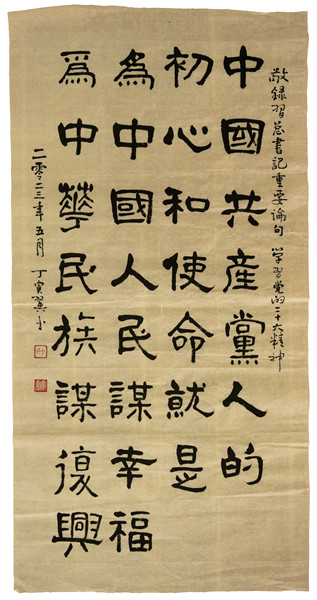 敬録習总書記重要論句 学習党的二十大精神
中國共産黨人的
初心和使命就是
為中國人民謀幸福
爲中華民族謀復興
二零二三年五月 丁寅翼